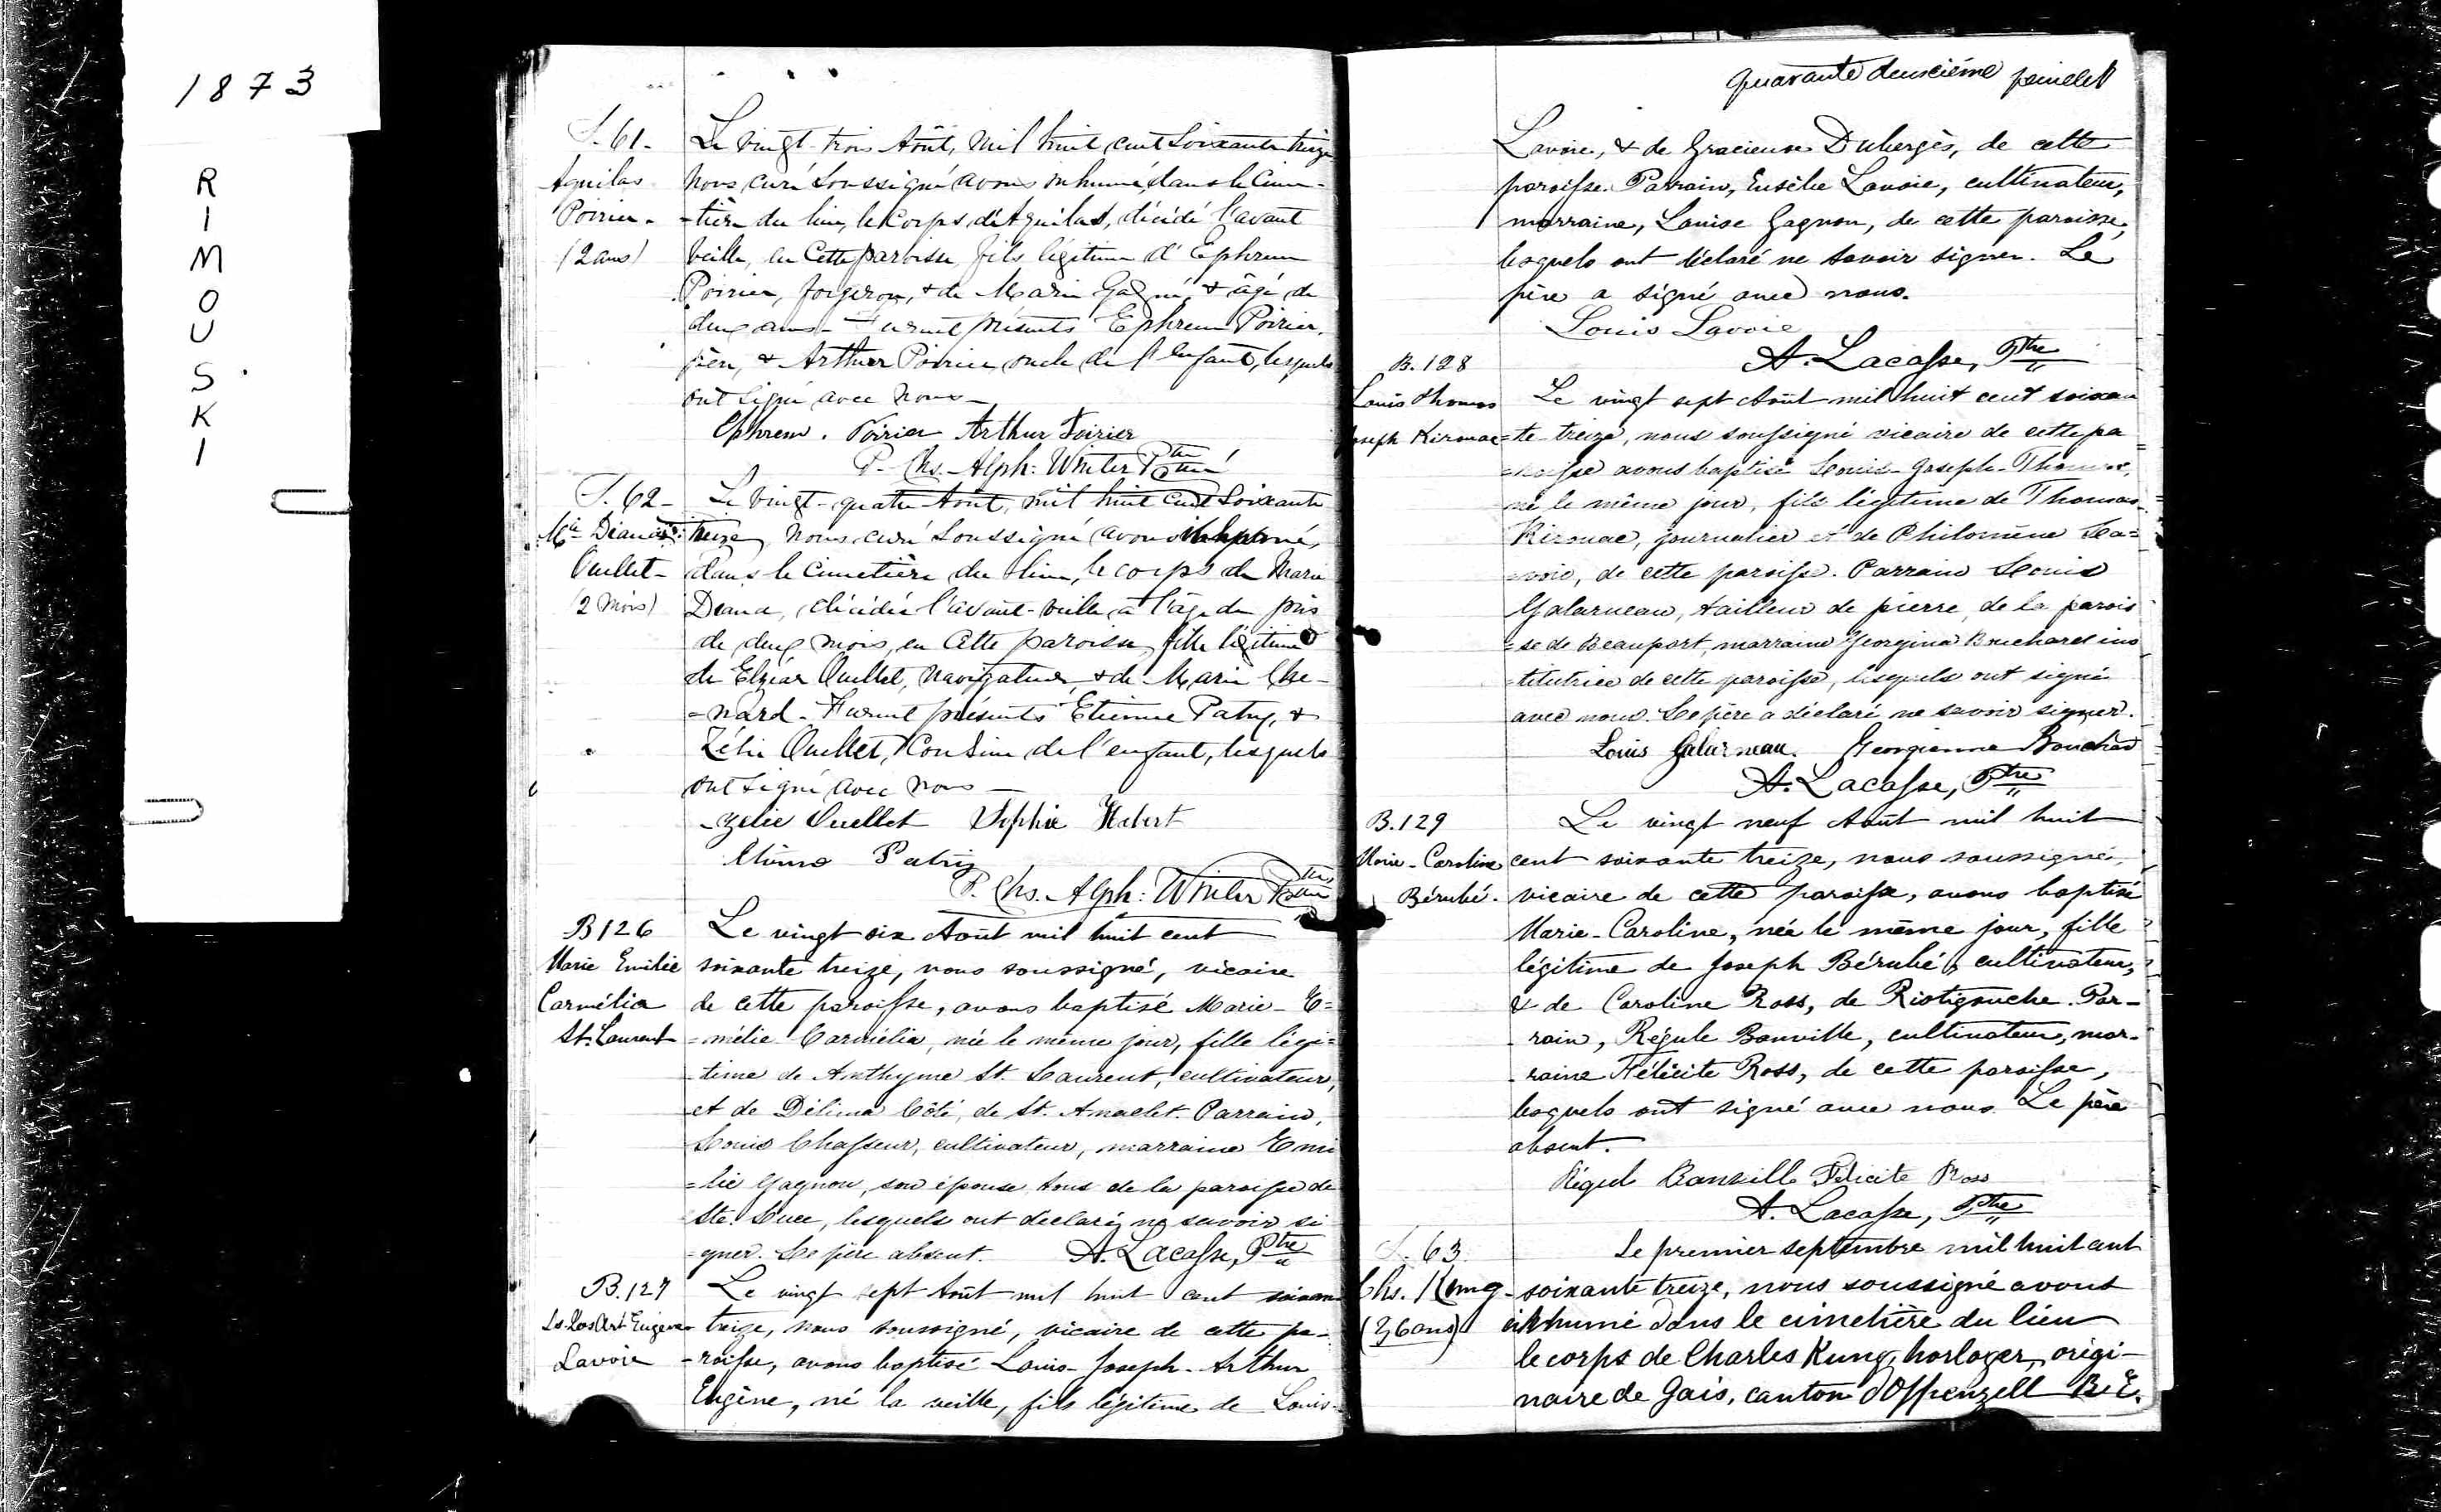 1873
RIMOUSKI
S. 61.
Aquilas
Poirier.
(2 ans)
Le vingt-trois Août, mil huit cent soixante treize
Nous curé soussigné avons inhumé, dans le Cime-
-tière du lieu, le Corps d'Aquilas, décédé l'avant
veille, en cette paroisse, fils légitime d'Ephrem
Poirier, forgeron, & de Marie Gagné, & âgé de
deux ans. Furent présents Ephrem Poirier,
père, & Arthur Poirier oncle de l'enfant, lesquels
ont signé avec nous
Ephrem. Poirier Arthur Poirier
P. Chs. Alph: Winter Ptre
S. 62
Mie Diana
Ouellet
(2 mois)
Le vingt-quatre Août, mil huit cent soixante
treize, Nous curé soussigné avons inhumé,
dans le Cimetière du lieu, le corps de Marie
Diana, décédée l'avant-veille, à l'âge de près
de deux mois, en cette paroisse, fille légitime
de Elzéar Ouellet, navigateur, & de Marie Che-
=nard. Furent présents Etienne Patry, &
Zélie Ouellet, Cousine de l'enfant, lesquels
ont signé avec nous
Zelie Ouellet Sophie Hebert
Patry
P. Chs. Alph: Winter Ptre
B 126
Marie Emilie
Carmélia
St. Laurent
Le vingt six Août mil huit cent
soixante treize, nous soussigné, vicaire
de cette paroisse, avons baptisé Marie-E=
=mélie Carmélia, née le même jour, fille légi=
-time de Anthyme St. Laurent, cultivateur,
et de Délima Côté, de St. Anaclet. Parrain,
Louis Chasseur, cultivateur, marraine Emi
=lie Gagnon, son épouse tous de la paroisse de
Ste. Luce, lesquels ont declaré ne savoir si
=gner. Le père absent. A. Lacasse, Ptre
B. 127
Ls. Jos Art Eugène
Lavoie
Le vingt sept Août mil huit cent soixante
treize, nous soussigné, vicaire de cette pa-
-roisse, avons baptisé Louis-Joseph-Arthur
Eugène, né la veille, fils légitime de Louis
quarante deuxième feuillet
Lavoie, & de Gracieuse Dubergès, de cette
paroisse. Parrain, Eusèbe Lavoie, cultivateur,
marraine, Louise Gagnon, de cette paroisse,
lesquels ont déclaré ne savoir signer. Le
père a signé avec nous.
Louis Lavoie
A. Lacasse, Ptre
B. 128
Louis Thomas
Joseph Kirouac
Le vingt sept Août mil huit cent soixan
=te treize, nous soussigné vicaire de cette pa
=roisse avons baptisé Louis-Joseph-Thomas,
né le même jour, fils légitime de Thomas
Kirouac, journalier et de Philomène La=
=voie, de cette paroisse. Parrain Louis
Galarneau, tailleur de pierre, de la parois
=se de Beauport, marraine Georgina Bouchard ins
=titutrice de cette paroisse, lesquels ont signé
avec nous. Le père a déclaré ne savoir signer.
Louis Galarneau. Georgienne Bouchard
A. Lacasse, Ptre
B. 129
Marie-Caroline
Bérubé.
Le vingt neuf Août mil huit
cent soixante treize, nous soussigné,
vicaire de cette paroisse, avons baptisé
Marie-Caroline, née le même jour, fille
légitime de Joseph Bérubé, cultivateur,
& de Caroline Ross, de Ristigouche. Par-
-rain, Régule Banville, cultivateur, mar-
-raine Félicite Ross, de cette paroisse,
lesquels ont signé avec nous. Le père
absent.
Régul Banville Félicite Ross
A. Lacasse, Ptre
S. 63
Chs. Kung
(36 ans)
Le premier septembre mil huit cent
soixante treize, nous soussigné avons
inhumé dans le cimetière du lieu
le corps de Charles Kung, horloger, origi-
naire de Gais, canton d'Appenzell